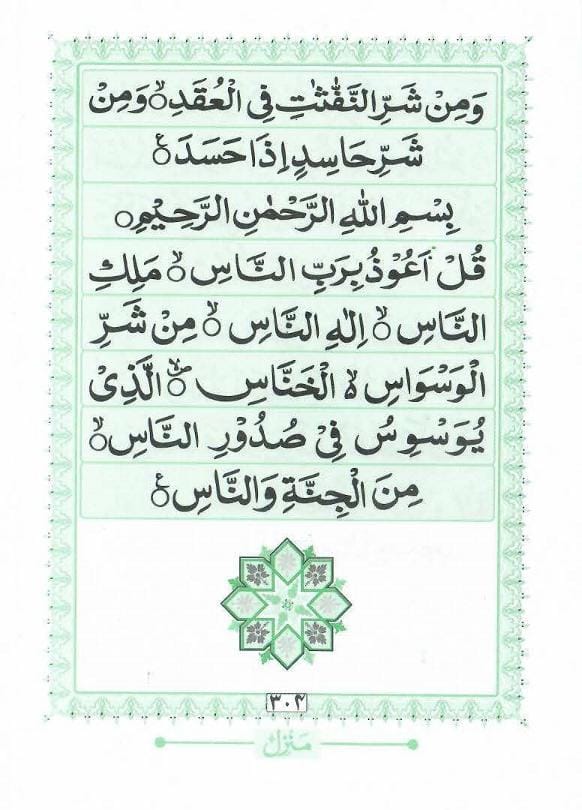 وَمِنْ شَرِّ النَّفّٰثٰتِ فِی الْعُقَدِ۝ۙ وَمِنْ
شَرِّ حَاسِدٍ اِذَا حَسَدَ۝ع
بِسْمِ اللهِ الرَّحْمٰنِ الرَّحِیْمِ۝
قُلْ اَعُوْذُ بِرَبِّ النَّاسِ۝ۙ مَلِكِ
النَّاسِ۝ۙ اِلٰهِ النَّاسِ۝ۙ مِنْ شَرِّ
الْوَسْوَاسِ ە الْخَنَّاسِ۝ۙ الَّذِیْ
یُوَسْوِسُ فِیْ صُدُوْرِ النَّاسِ۝ۙ
مِنَ الْجِنَّةِ وَالنَّاسِ۝ع
۳۰۴
منزل